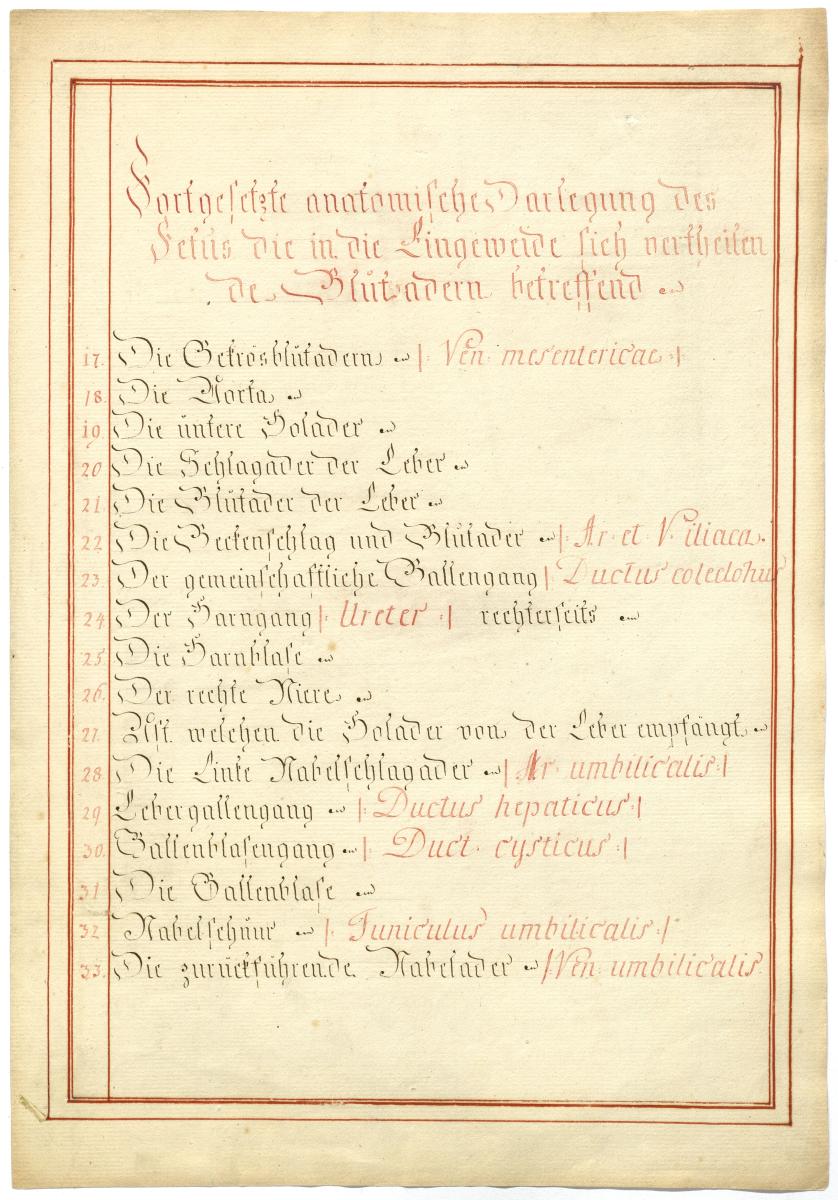 Fortgesetzte anatomische Darlegung des
Fetus die in die Eingeweide sich vertheilen
de Blutadern betreffend
17. Die Gekrösblutadern |: Ven mesentericae :|
18. Die Aorta
19. Die untere Holader
20 Die Schlagader der Leber
21. Die Blutader der Leber
22. Die Beckenschlag und Blutader |: Ar et V iliaca.
23. Der gemeinschaftliche Gallengang |: Ductus coledohus
24 Der Harngang |: Ureter :| rechterseits
25 Die Harnblase
26. Der rechte Niere
27. Ast welchen die Holader von der Leber empfängt
28. Die Linke Nabelschlagader |: Ar umbilicalis :|
29 Lebergallengang |: Ductus hepaticus :|
30. Gallenblasengang |: Duct cysticus :|
31 Die Gallenblase
32 Nabelschnur |: Funiculus umbilicalis :|
33. Die zurückführende Nabelader |: Ven umbilicalis